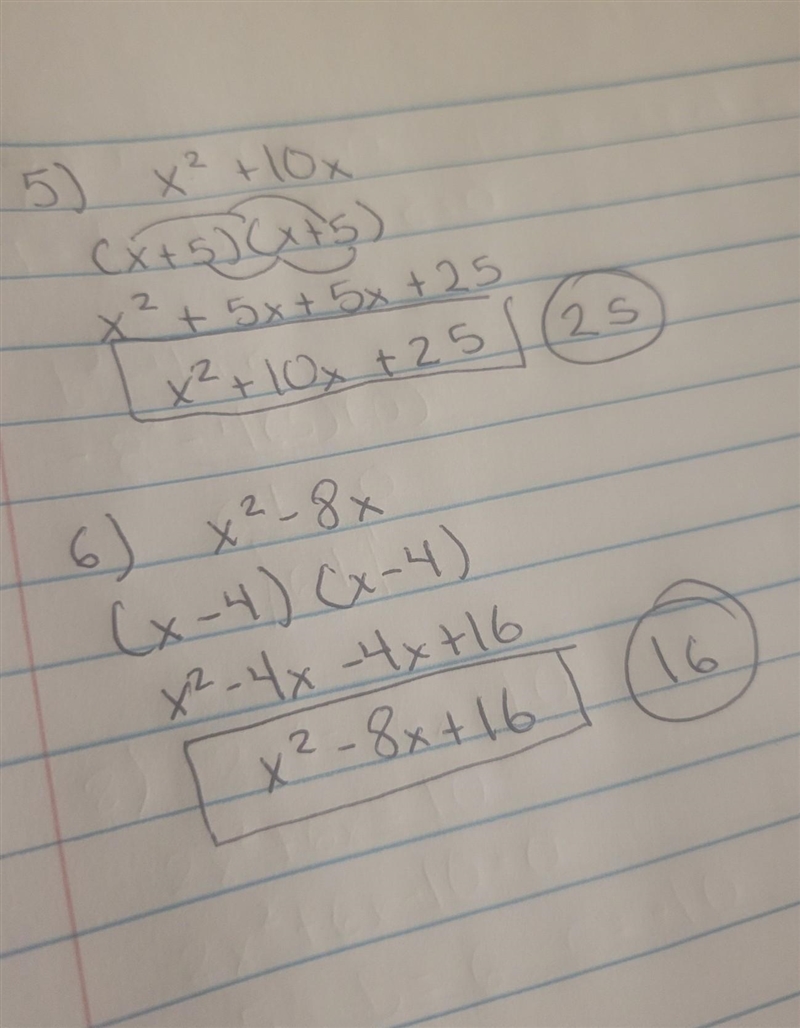 5) x² +10x
(x+5)(x+5)
x² + 5x + 5x + 25
x² + 10x + 25 25
6) x² - 8x
(x-4) (x-4)
x² - 4x - 4x + 16
x² - 8x + 16 16